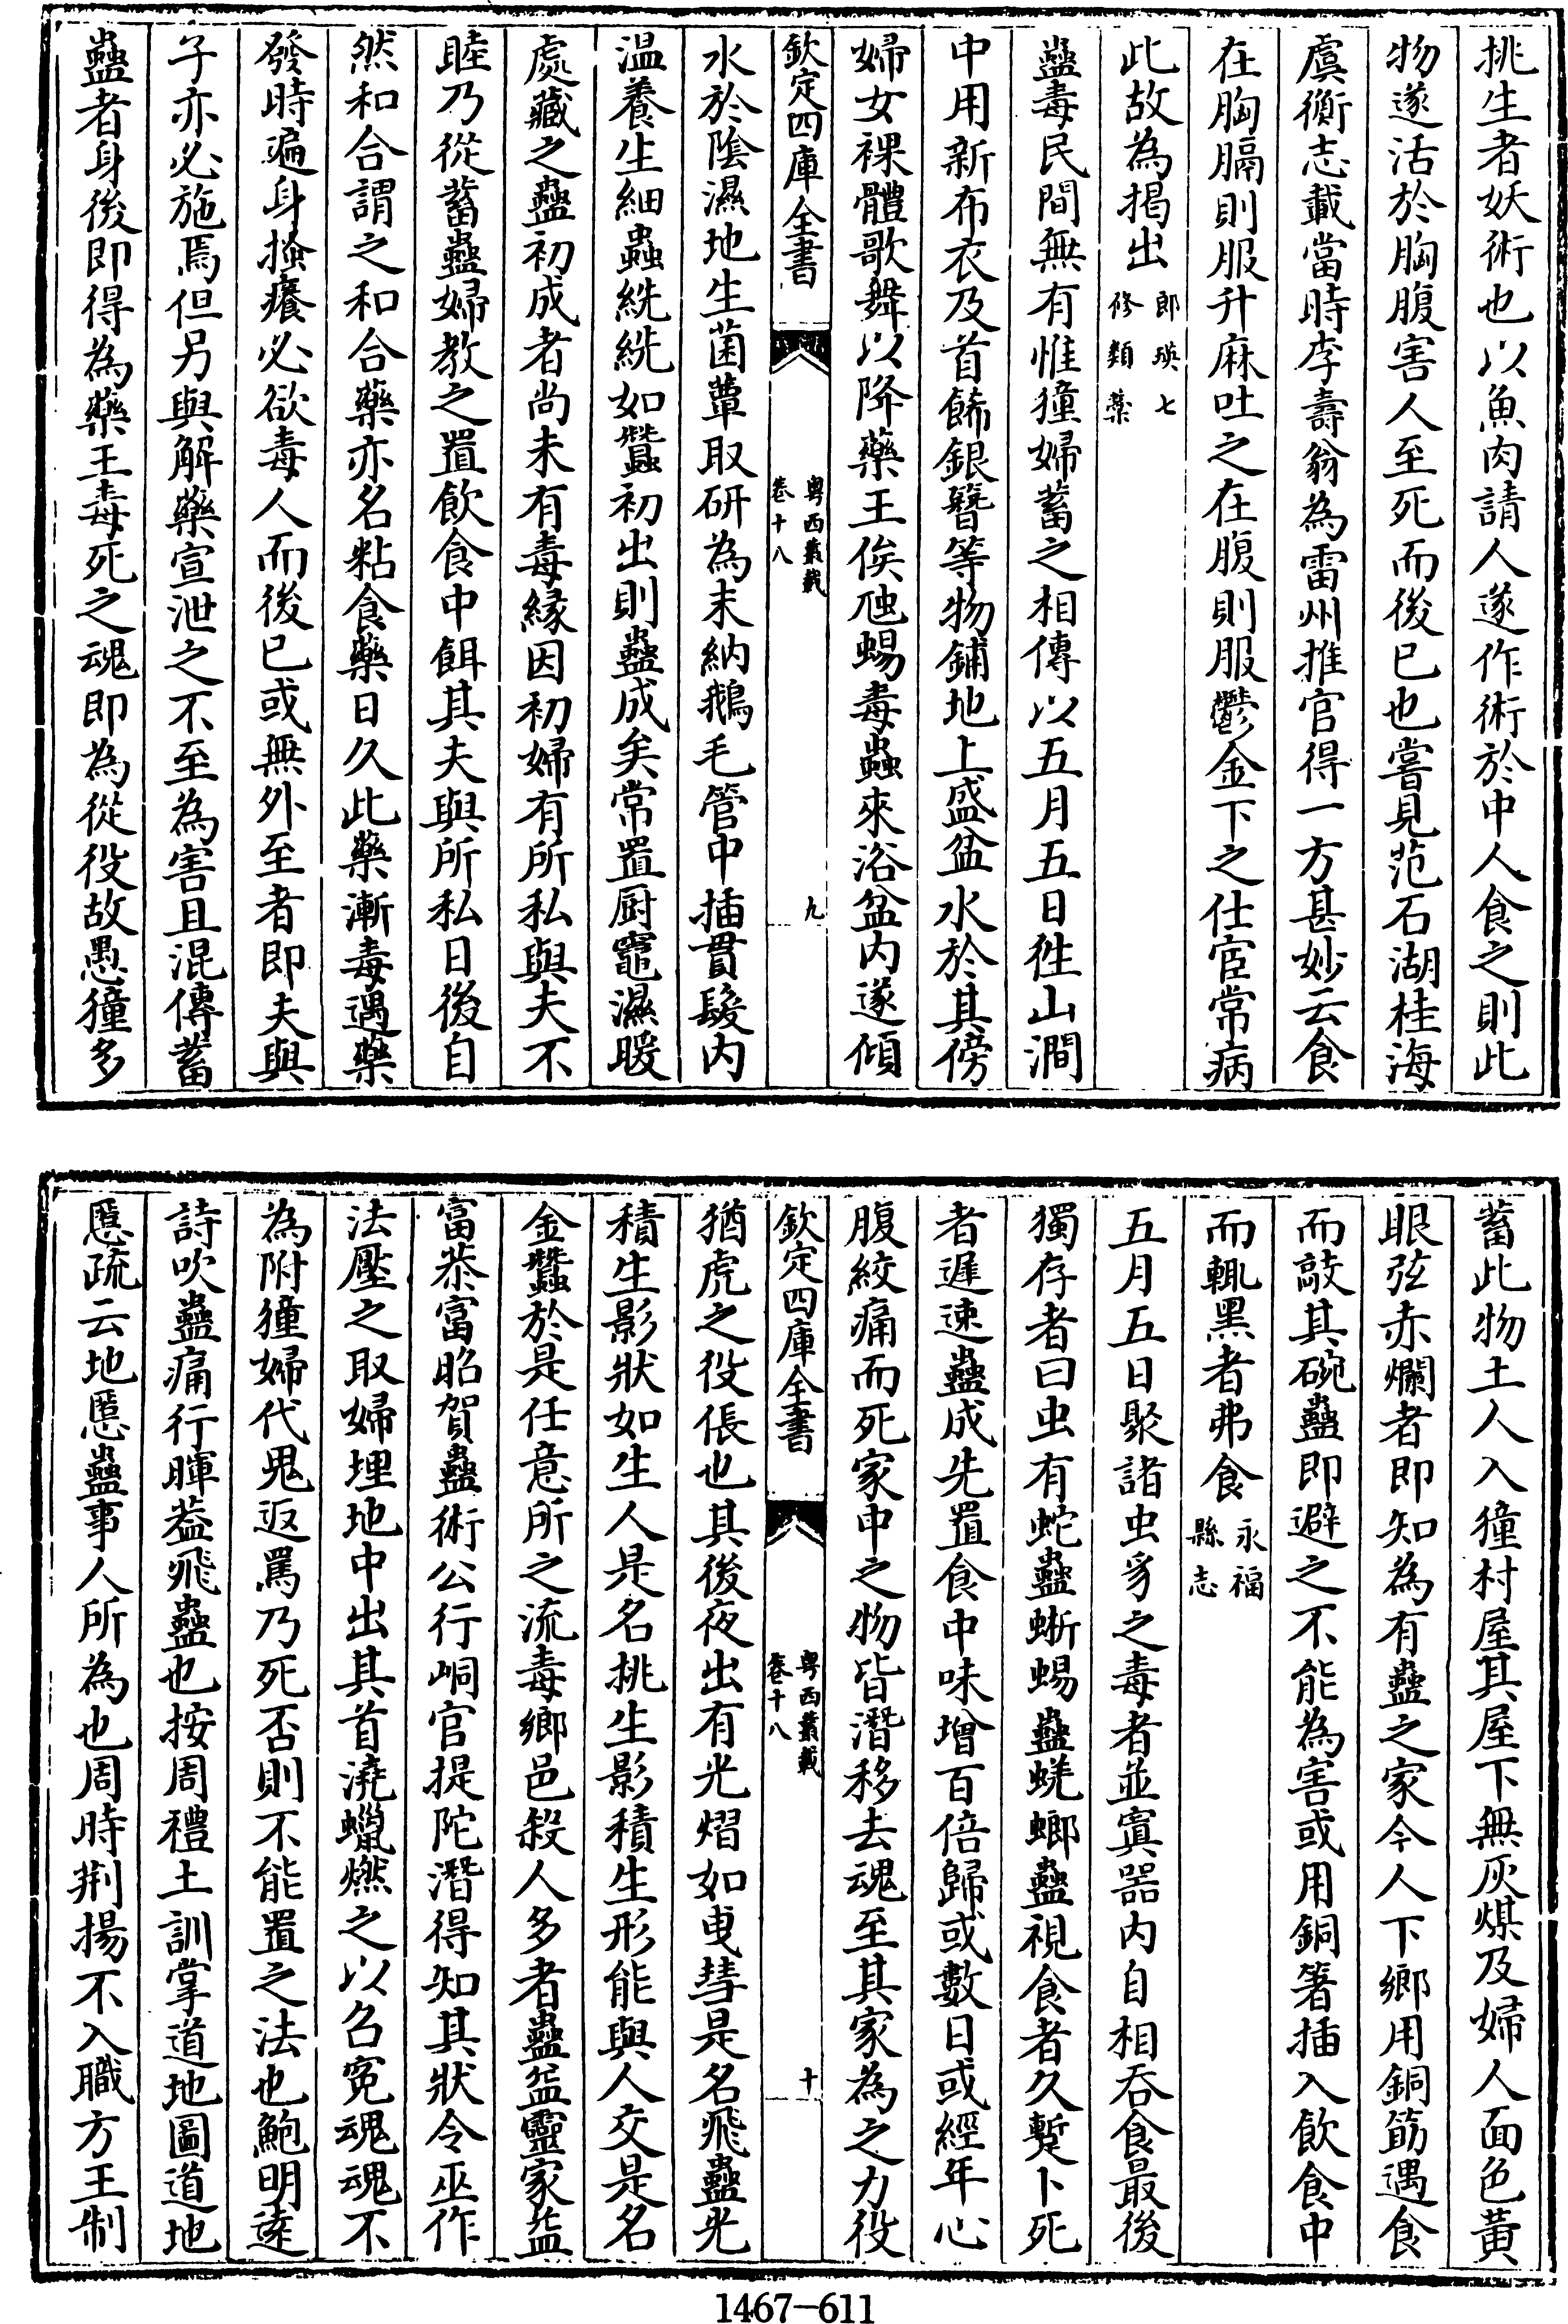 挑生者妖術也以魚肉請人遂作術於中人食之則此
物遂活於胸腹害人至死而後已也嘗見范石湖桂海
虞衡志載當時李壽翁為雷州推官得一方甚妙云食
在胸膈則服升麻吐之在腹則服鬱金下之仕宦常病
此故為揭出郎瑛七修類藁
蠱毒民間無有惟獞婦蓄之相傳以五月五日徃山澗
中用新布衣及首餙銀簪等物鋪地上盛盆水於其傍
婦女裸體歌舞以降藥王俟虺蜴毒蟲來浴盆内遂傾
欽定四庫全書
粤西叢載
卷十八
九
水於陰濕地生菌蕈取研為末納鵝毛管中插貫髮内
温養生細蟲絖絖如蠶初出則蠱成矣常置厨竈濕暖
處藏之蠱初成者尚未有毒縁因初婦有所私與夫不
睦乃從蓄蠱婦教之置飲食中餌其夫與所私日後自
然和合謂之和合藥亦名粘食藥日久此藥漸毒遇藥
發時遍身搔癢必欲毒人而後已或無外至者即夫與
子亦必施焉但另與解藥宣泄之不至為害且混傳蓄
蠱者身後即得為藥王毒死之魂即為從役故愚獞多
蓄此物土人入獞村屋其屋下無灰煤及婦人面色黄
眼弦赤爛者即知為有蠱之家今人下鄉用銅筯遇食
而敲其碗蠱即避之不能為害或用銅箸插入飲食中
而輒黑者弗食永福縣志
五月五日聚諸虫豸之毒者並寘器内自相吞食最後
獨存者曰虫有蛇蠱蜥蜴蠱蜣螂蠱視食者久蹔卜死
者遲速蠱成先置食中味增百倍歸或數日或經年心
腹絞痛而死家中之物皆潛移去魂至其家為之力役
欽定四庫全書
粤西叢載
卷十八
十
猶虎之役倀也其後夜出有光熠如曵彗是名飛蠱光
積生影狀如生人是名挑生影積生形能與人交是名
金蠶於是任意所之流毒鄉邑殺人多者蠱益靈家益
富㳟富昭賀蠱術公行峒官提陀潛得知其狀令巫作
法壓之取婦埋地中出其首澆蠟燃之以召寃魂魂不
為附獞婦代鬼返罵乃死否則不能置之法也鮑明逺
詩吹蠱痛行暉葢飛蠱也按周禮土訓掌道地圖道地
慝疏云地慝蠱事人所為也周時荆揚不入職方王制
1467-611